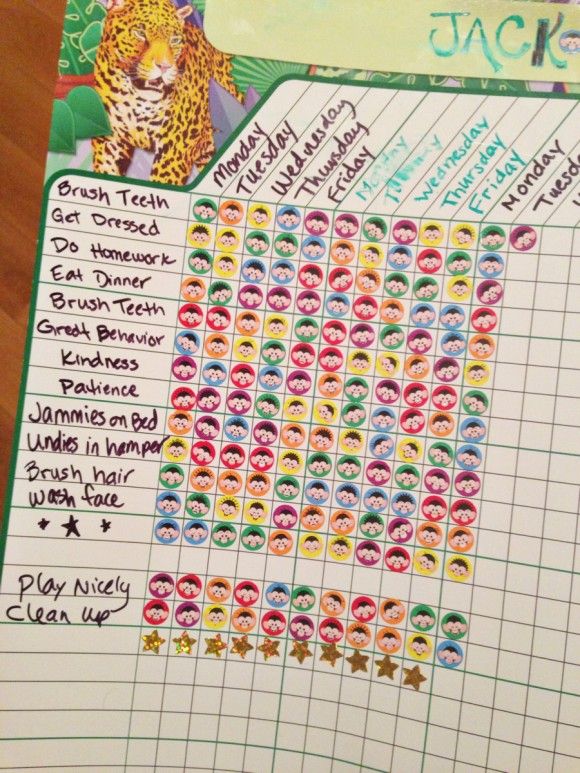 JACK
Monday
Tuesday
Wednesday
Thursday
Friday
Monday
Tuesday
Wednesday
Thursday
Friday
Monday
Tuesday
Brush Teeth
Get Dressed
Do Homework
Eat Dinner
Brush Teeth
Great Behavior
Kindness
Patience
Jammies on Bed
Undies in hamper
Brush hair
Wash face
Play Nicely
Clean up